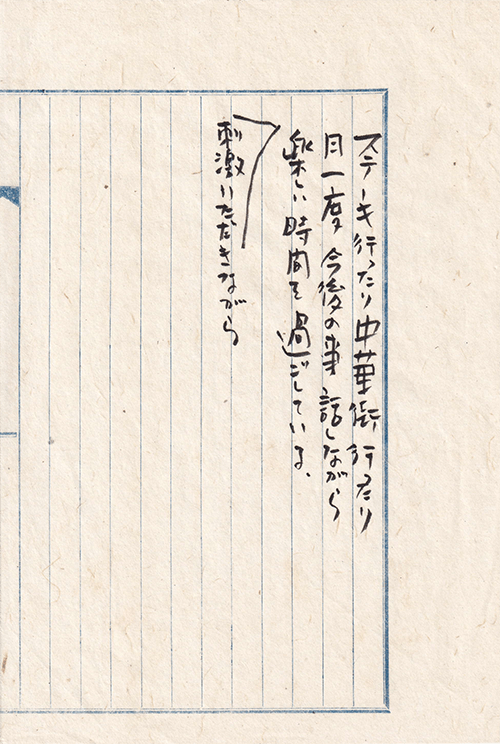 ステーキ行ったり中華街行ったり
月一度今後の事話しながら
楽しい時間を過ごしている、
刺激いただきながら